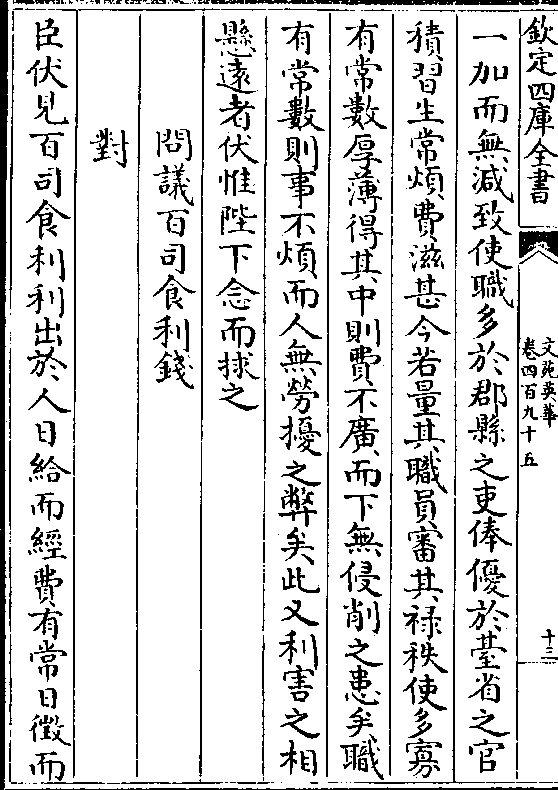 欽定四庫全書
文苑英華
卷四百九十五
十三
一加而無減致使職多於郡縣之吏俸優於臺省之官
積習生常煩費滋甚今若量其職員審其祿秩使多寡
有常數厚薄得其中則費不廣而下無侵削之患矣職
有常數則事不煩而人無勞擾之弊矣此又利害之相
懸遠者伏惟陛下念而捄之
問議百司食利錢
對
臣伏見百司食利利出於人日給而經費有常日徵而